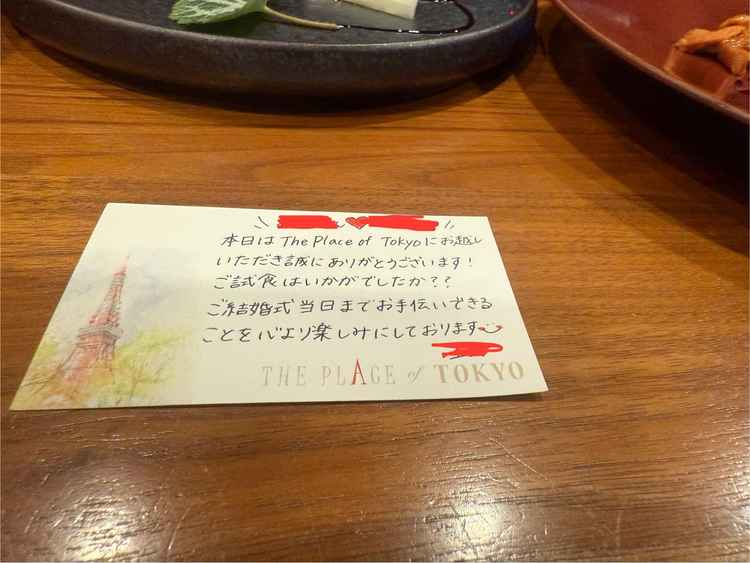 本日はThe Place of Tokyoにお越し
いただき誠にありがとうございます!
ご試食はいかがでしたか??
ご結婚式当日までお手伝いできる
ことを心より楽しみにしております
THE PLACE of TOKYO